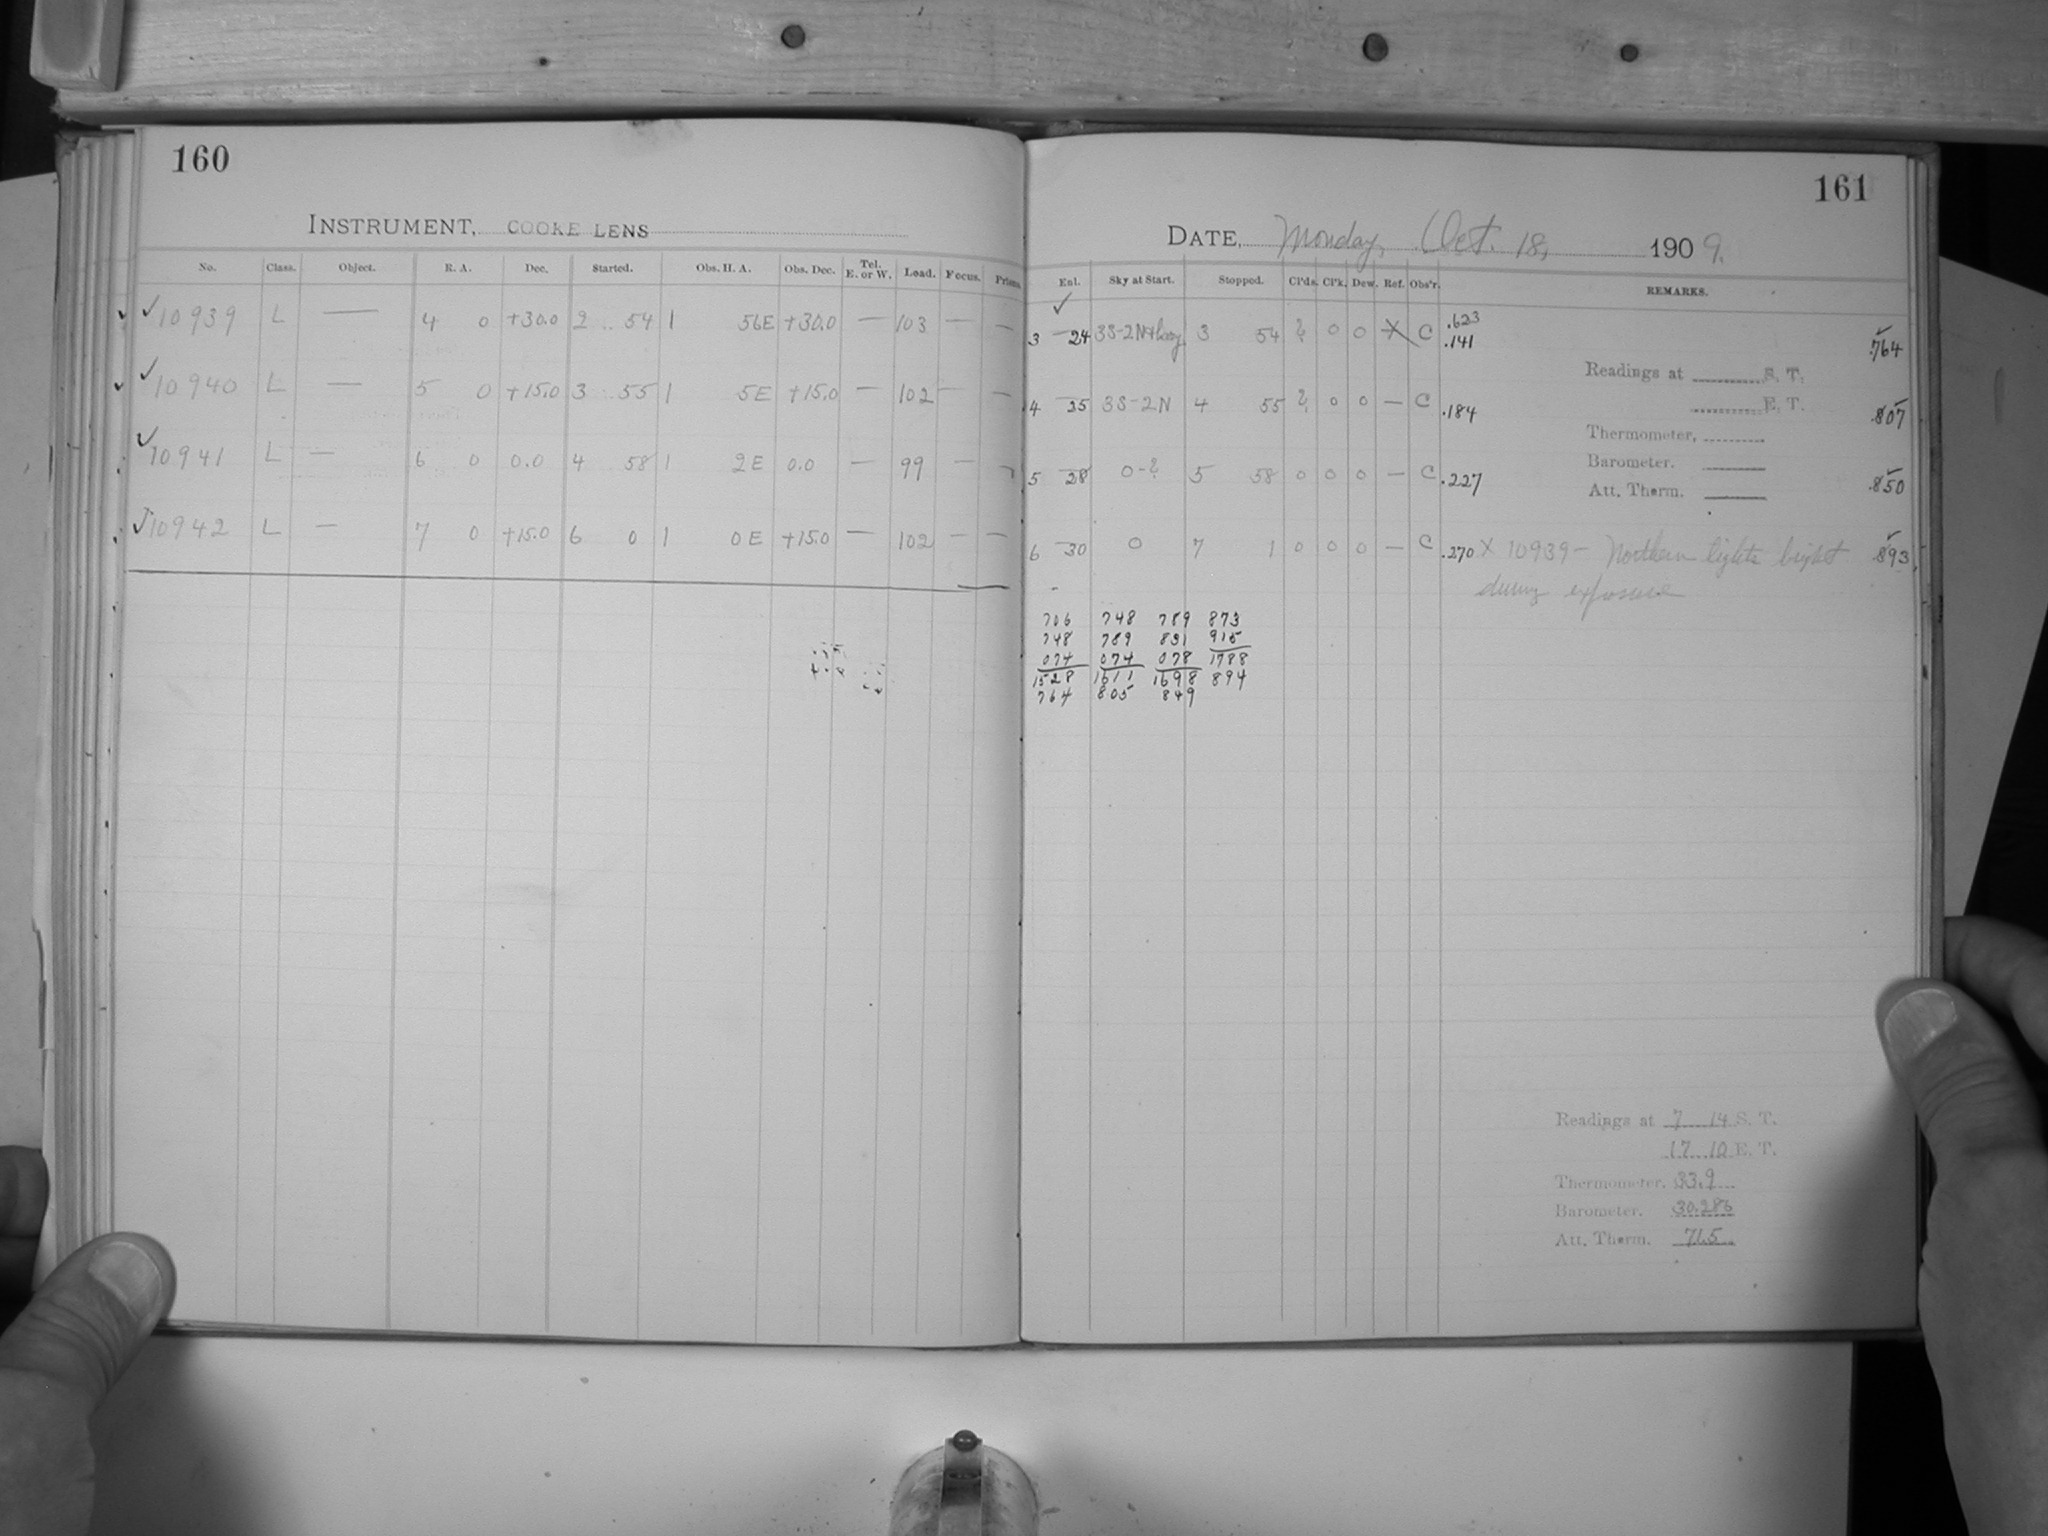 160
INSTRUMENT, COOKE LENS
No. Class. Object. R. A. Dec. Started. Obs. H. A. Obs. Dec. Tel. E. or W. Load. Focus. Prism
✓10939 L — 4 0 +30.0 2 54 1 56E +30.0 — 103 — —
✓10940 L — 5 0 +15.0 3 55 1 5E +15.0 — 102 — —
✓10941 L — 6 0 0.0 4 58 1 2E 0.0 — 99 — —
✓10942 L — 7 0 +15.0 6 0 1 0E +15.0 — 102 — —
161
DATE, Monday, Oct. 18, 1909.
Enl. Sky at Start. Stopped. Cl'ds. Cl'k. Dew. Ref. Obs'r. REMARKS.
✓
3 24 3S-2N 3 54 ? 0 0 X C .623
.141 .764
Readings at S. T.
4 25 3S-2N 4 55 ? 0 0 — C .184 .807
E. T.
Thermometer,
Barometer.
5 28 0-? 5 58 0 0 0 — C .227 .850
Att. Therm.
6 30 0 7 1 0 0 0 — C .270 X 10939 — Northern lights bright .893
during exposure
706 748 789 873
748 789 831 915
074 074 078 1788
1528 1611 1698 894
764 805 849
Readings at 7 14 S. T.
17 10 E. T.
Thermometer. 33.9
Barometer. 30.286
Att. Therm. 71.5